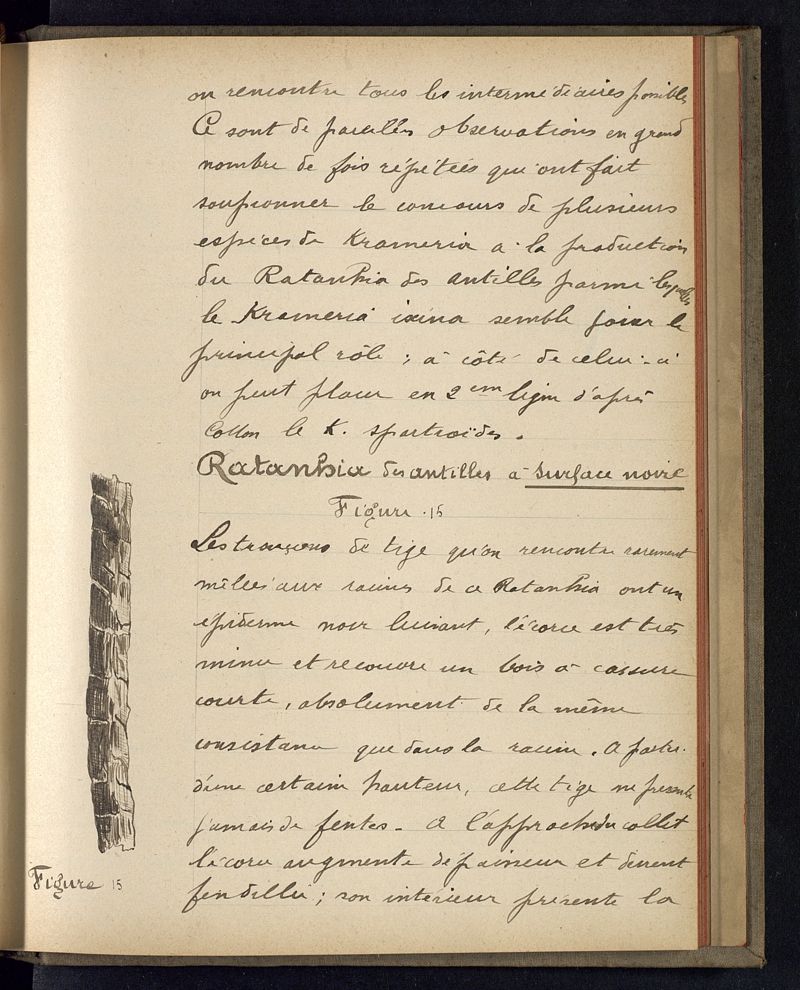 on rencontre tous les intermédiaires possibles
Ce sont de pareilles observations en grand
nombre de fois répétées qui ont fait
soupçonner le concours de plusieurs
espèces de Krameria à la production
du Ratanhia des antilles parmi lesquelles
le Krameria ixina semble jouer le
principal rôle ; à côté de celui-ci
on peut placer en 2em ligne d'après
Cotton le K. spartioïdes.
Ratanhia des antilles à surface noire
Figure 15
Les tronçons de tige qu'on rencontre rarement
mêlées aux racines de ce Ratanhia ont un
épiderme noir luisant, l'écorce est très
mince et recouvre un bois à cassure
courte, absolument de la même
consistance que dans la racine. A partir
d'une certaine hauteur, cette tige ne présente
jamais de fentes. A l'approche du collet
l'écorce augmente d'épaisseur et devient
fendillée ; son intérieur présente la
Figure 15